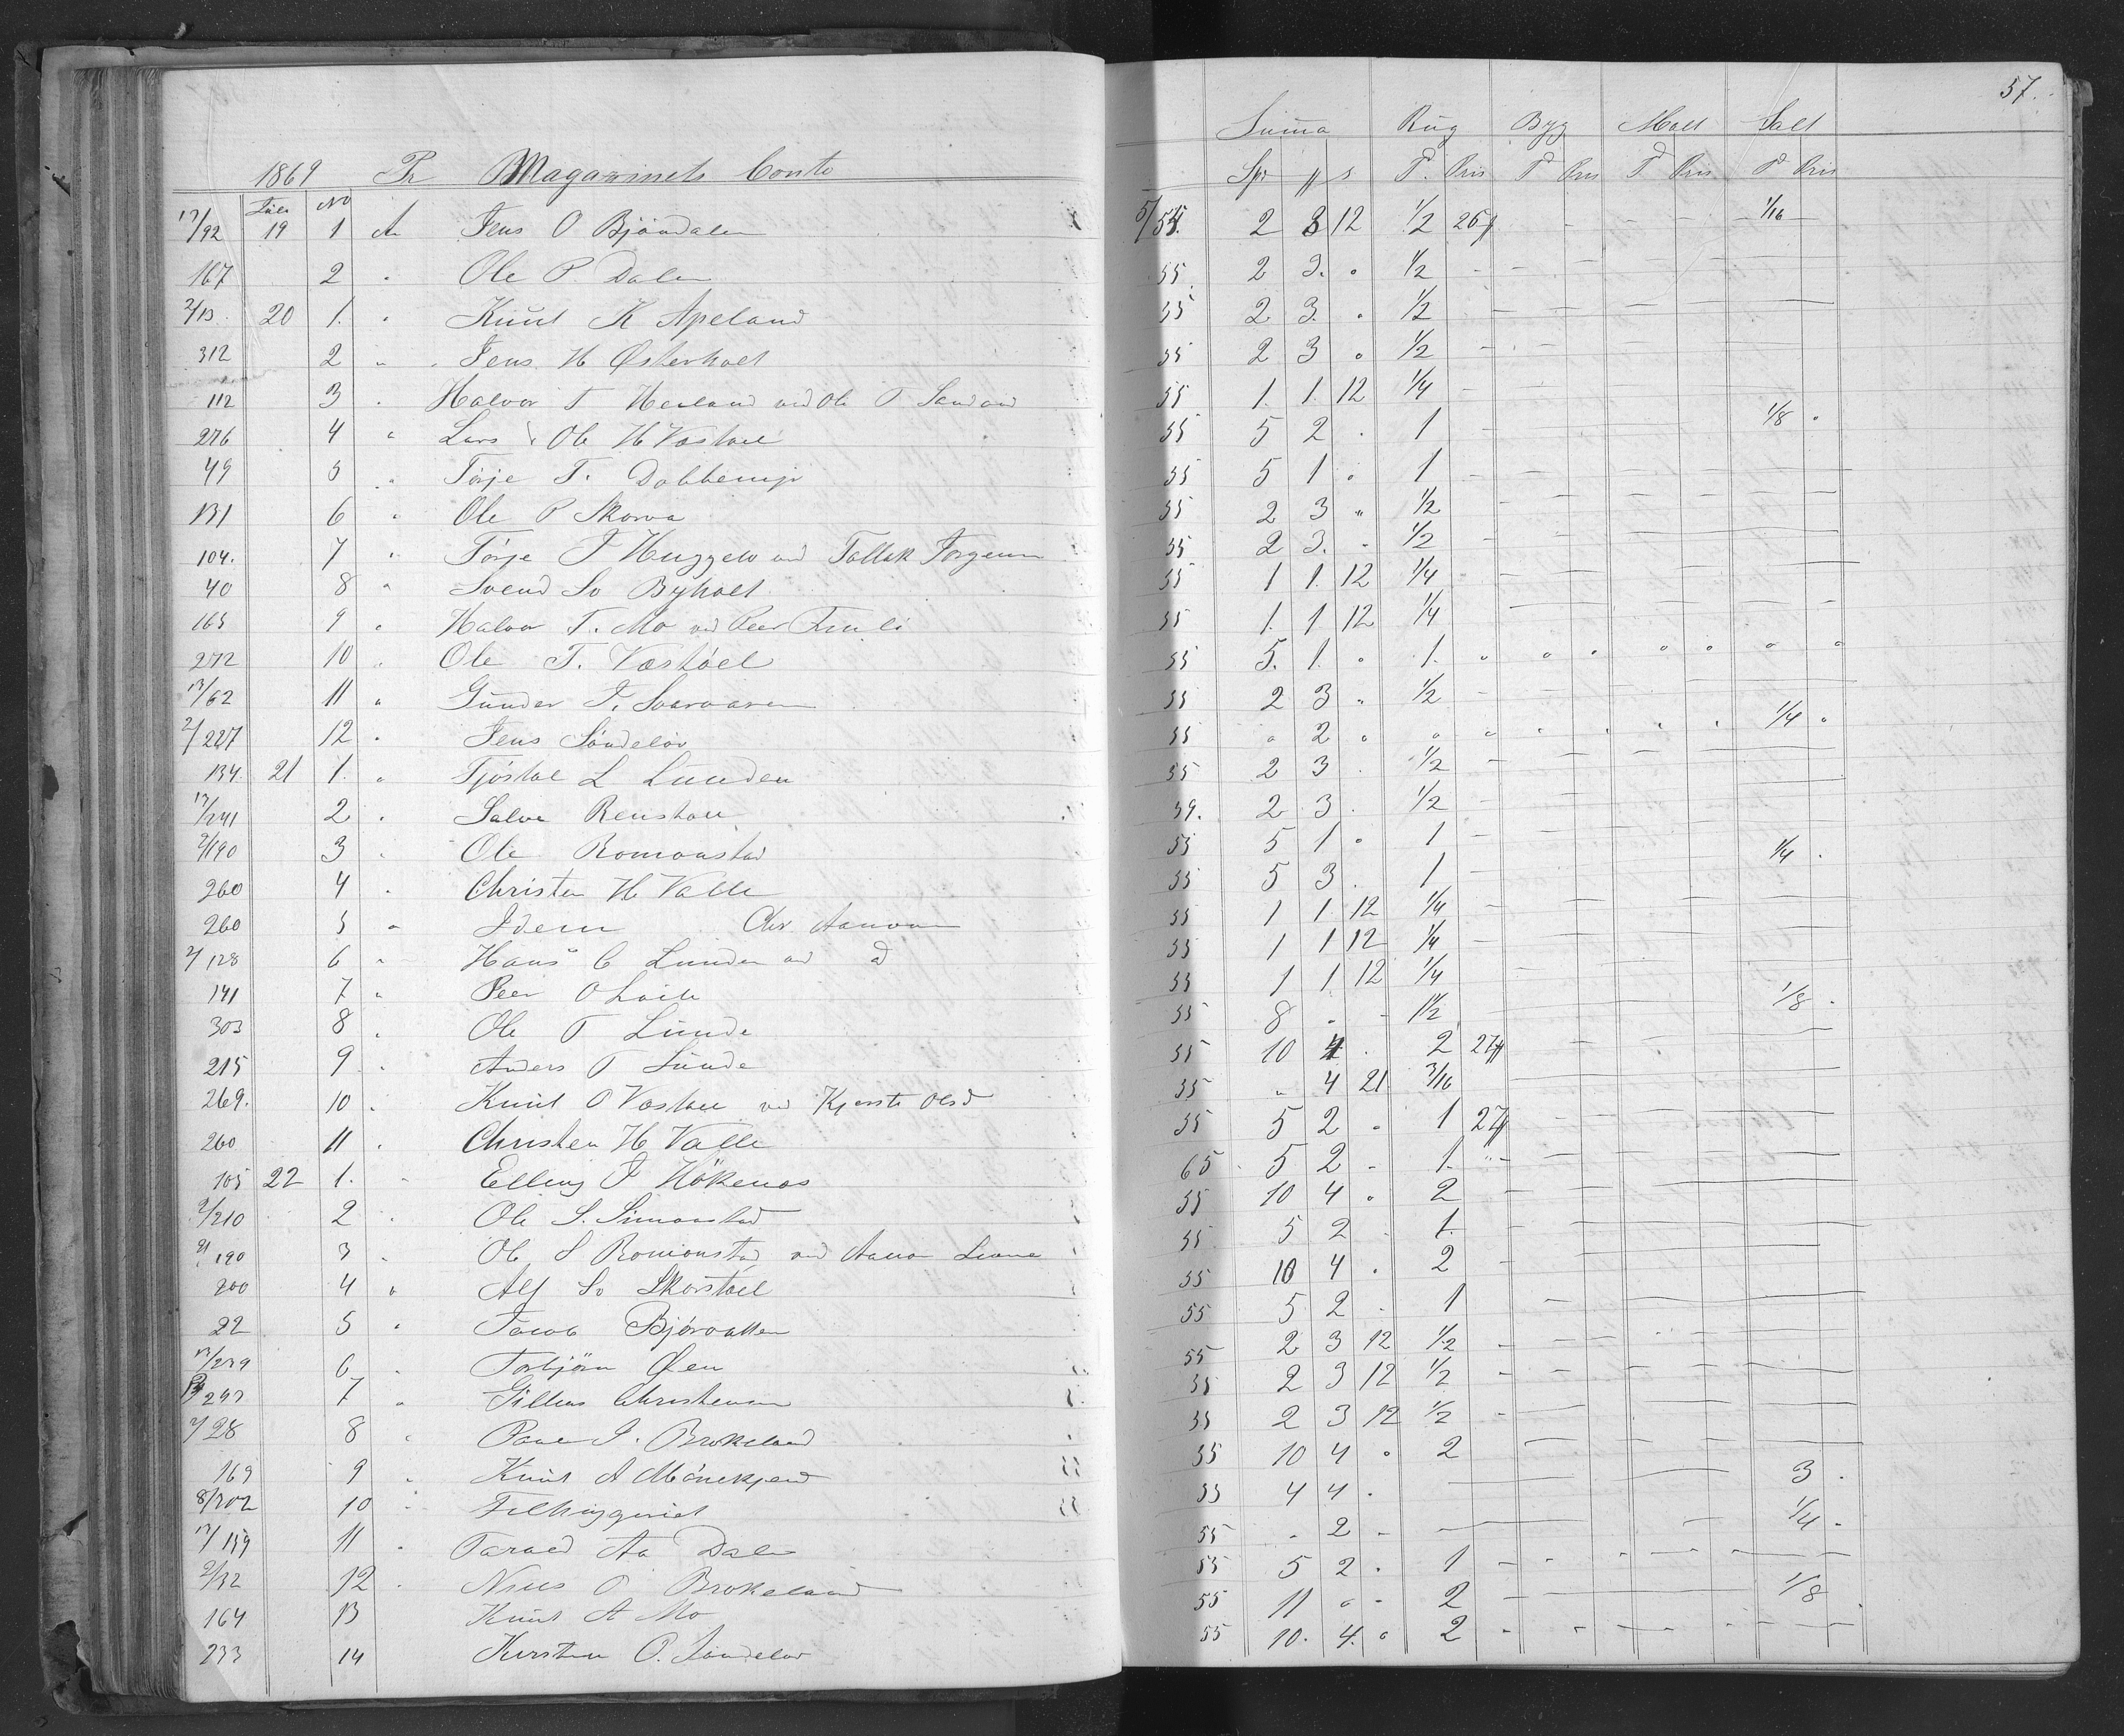 57.
Suma Rug Byg Malt Salt
1869 Pr Magazinets Conto Spr # s T. Pris T Pris T Pris T Pris
17/92 Juli 19 No 1 An Jens O Bjöndalen 5/55. 2 3 12 1/2 26# 1/16
167 2 " Ole P. Dalen 55. 2 3. " 1/2
2/13. 20 1. " Knut K Apeland 55 2 3. " 1/2
312 2 " Jens H Østerholt 55 2 3 " 1/2
112 3 " Halvor T Heiland ved Ole T Sandvid 55 1. 1. 12 1/4
276 4 " Lars Ole H Vastøel 55 5 2 . 1 1/8 "
49 5 " Terje T. 55 5 1 " 1
131 6 " Ole P Skorva 55 2 3 " 1/2
104. 7 " Terje J ved Tallak Jørgensen 55 2 3. - 1/2
40 8 " Svend Sv Byholt 55 1 1. 12 1/4
165 9 " Halvor T. Mo ved Peer 55 1. 1 12 1/4
272 10 " Ole T. Vastöel 55 5. 1. " 1. " " " " " " "
17/62 11 " Gunder J. 55 2 3 " 1/2
2/227 12 " Jens Söndeløv 55 " 2 " " " 1/4 "
134. 21 1. " Tjöstol L Lunden 55 2 3 . 1/2
17/241 2 " Salve 59. 2 3 . 1/2
2/190 3 " Ole Romonstad 55 5 1 " 1
260 4 " Christen H Valle 55 5 3 . 1 1/4 .
260 5 " Idem Chr Aanonsen 55 1 1. 12 1/4
2/128 6 " Hans C Lunden ved d 55 1 1 12 1/4
141 7 " Peer O 55 1 1 12 1/4
303 8 " Ole T Lunde 55 8 . - 1 1/2 1/8 .
215 9 " Anders T Lunde 55 10 4 . 2 27#
269. 10 " Knut O Vastøel ved Kjersti Olsd 55 " 4 21 3/16
260 11 " Christen H Valle 55 5 2 " 1 27#
105 22 1. " Elling J Hökenes 65 5 2 - 1. "
2/210 2 " Ole S. Simonstad 55 10 4 " 2
2/190 3 " Ole S Romonstad ved Aanon 55 5 2 . 1.
200 4 " Alf Sv Skorstøel 55 10 4 . 2
22 5 " Jacob Bjørvatten 55 5 2 . 1
17/239 6 " Torbjörn Øen 55 2 3 12 1/2
297 7 " Gillius Christensen 55 2 3 12 1/2
2/28 8 " Paul J. Brokeland 55 2 3 12 1/2
169 9 " Knut A Mönekjend 55 10 4 " 2
8/302 10 " 55 4 4 . 3 .
17/159 11 " Tarald Aa Dale 55 . 2 - 1/4 "
2/32 12 " Niels O Brokeland 55 5 2 . 1
164 13 Knut A Mo 55 11 " - 2 1/8 .
233 14 Kirsten O. Söndeløv 55 10. 4. " 2